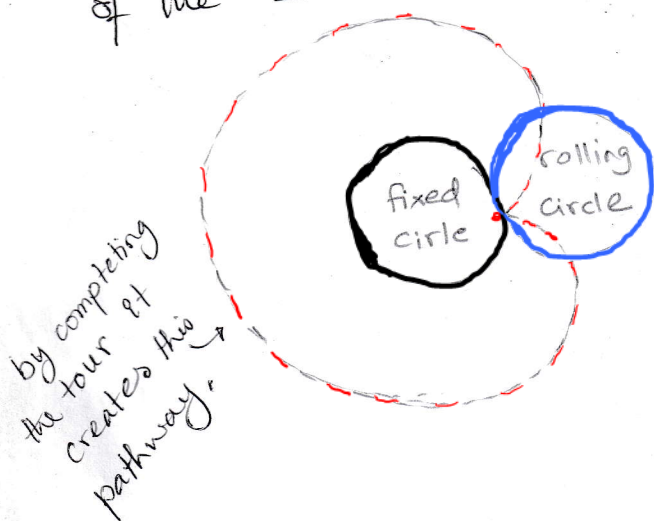 of the
fixed
cirle
rolling
circle
by completing
the tour it
creates this
pathway.